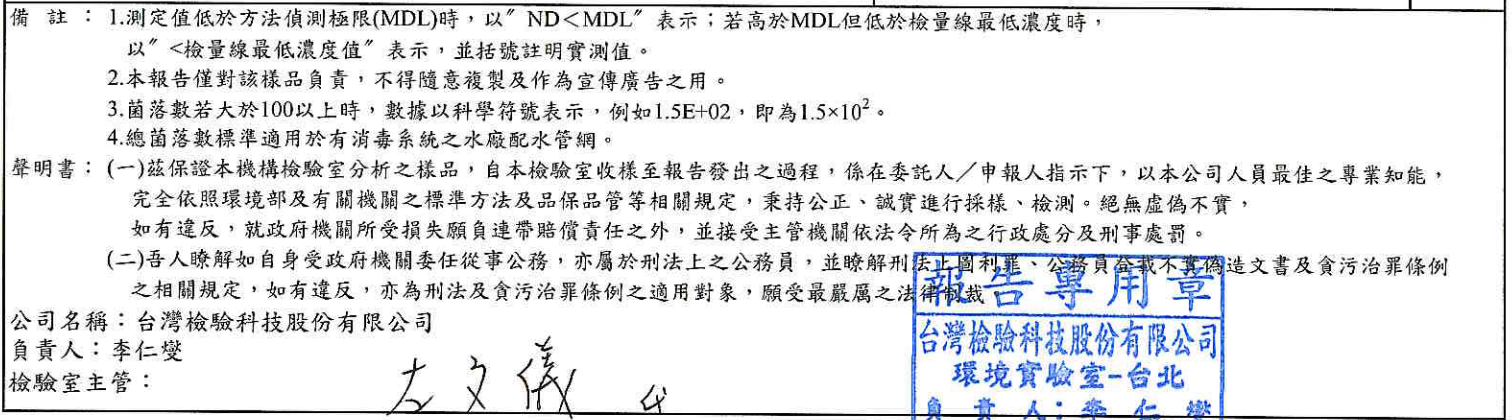 備　註：1.測定值低於方法偵測極限(MDL)時，以〞ND＜MDL〞表示；若高於MDL但低於檢量線最低濃度時，
以〞<檢量線最低濃度值〞表示，並括號註明實測值。
2.本報告僅對該樣品負責，不得隨意複製及作為宣傳廣告之用。
3.菌落數若大於100以上時，數據以科學符號表示，例如1.5E+02，即為1.5×10²。
4.總菌落數標準適用於有消毒系統之水廠配水管網。
聲明書：(一)茲保證本機構檢驗室分析之樣品，自本檢驗室收樣至報告發出之過程，係在委託人／申報人指示下，以本公司人員最佳之專業知能，
完全依照環境部及有關機關之標準方法及品保品管等相關規定，秉持公正、誠實進行採樣、檢測。絕無虛偽不實，
如有違反，就政府機關所受損失願負連帶賠償責任之外，並接受主管機關依法令所為之行政處分及刑事處罰。
(二)吾人瞭解如自身受政府機關委任從事公務，亦屬於刑法上之公務員，並瞭解刑法上圖利罪、公務員登載不實偽造文書及貪污治罪條例
之相關規定，如有違反，亦為刑法及貪污治罪條例之適用對象，願受最嚴厲之法律制裁
公司名稱：台灣檢驗科技股份有限公司
負責人：李仁燮
檢驗室主管：
左文儀 代
報告專用章
台灣檢驗科技股份有限公司
環境實驗室-台北
負責人：李仁燮